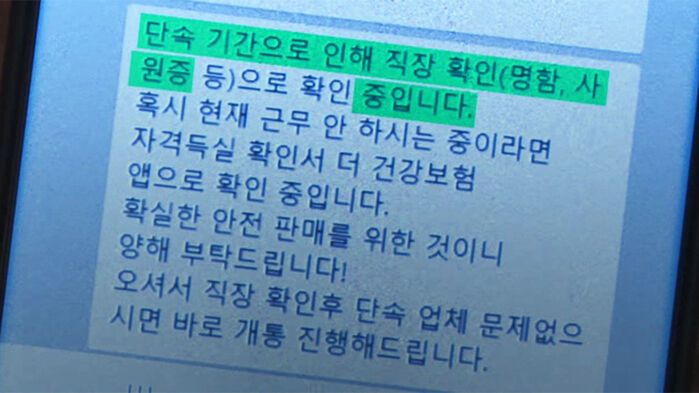 단속 기간으로 인해 직장 확인(명함, 사
원증 등)으로 확인 중입니다.
혹시 현재 근무 안 하시는 중이라면
자격득실 확인서 더 건강보험
앱으로 확인 중입니다.
확실한 안전 판매를 위한 것이니
양해 부탁드립니다!
오셔서 직장 확인후 단속 업체 문제없으
시면 바로 개통 진행해드립니다.